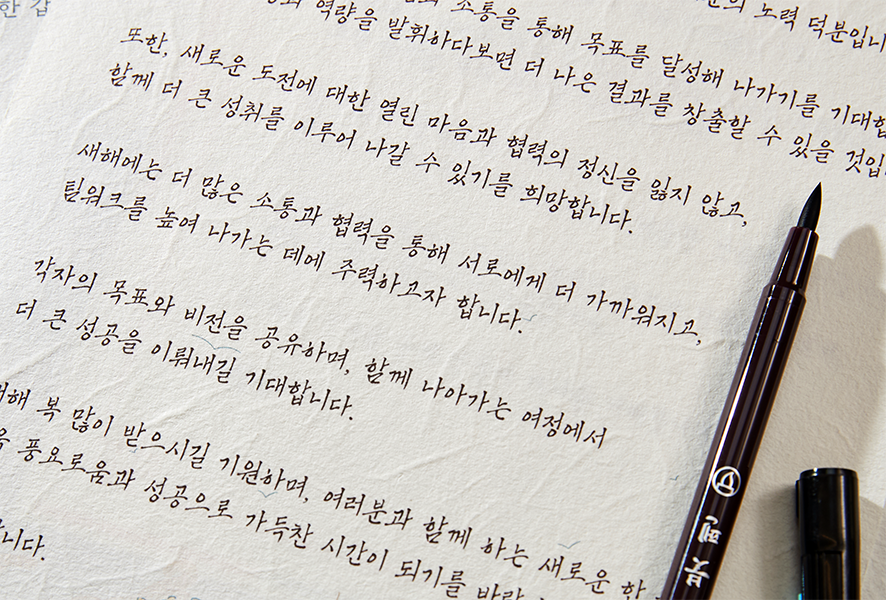 한 갑
소통을 통해 목표를 달성해 나가기를 기대합
노력 덕분입니
역량을 발휘하다보면 더 나은 결과를 창출할 수 있을 것입
또한, 새로운 도전에 대한 열린 마음과 협력의 정신을 잃지 않고,
함께 더 큰 성취를 이루어 나갈 수 있기를 희망합니다.
새해에는 더 많은 소통과 협력을 통해 서로에게 더 가까워지고,
팀워크를 높여 나가는 데에 주력하고자 합니다.
각자의 목표와 비전을 공유하며, 함께 나아가는 여정에서
더 큰 성공을 이뤄내길 기대합니다.
새해 복 많이 받으시길 기원하며, 여러분과 함께 하는 새로운 한
풍요로움과 성공으로 가득찬 시간이 되기를 바랍
니다.
붓펜